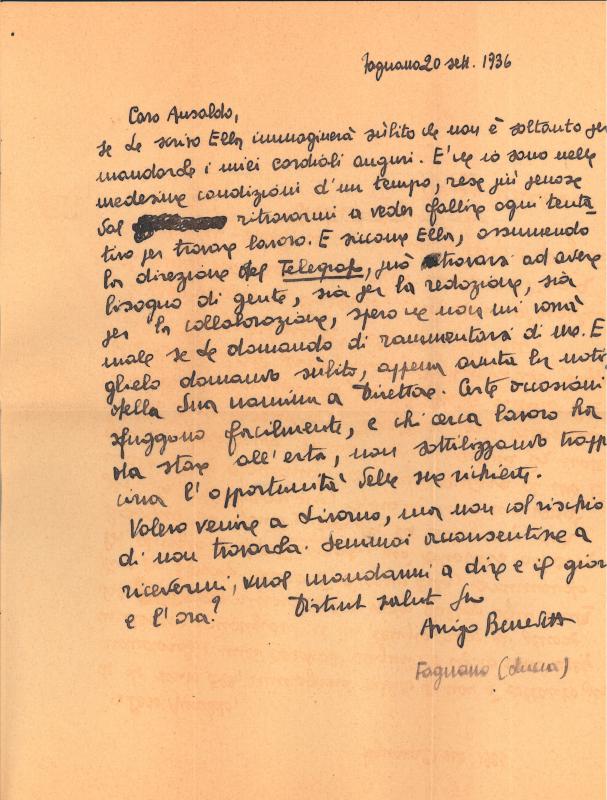 Fagnano 20 sett. 1936
Caro Ansaldo,
se Le scrivo Ella immaginerà sùbito che non è soltanto per
mandarLe i miei cordiali auguri. E' che io sono nelle
medesime condizioni d'un tempo, rese più penose
dal ritrovarmi a veder fallire ogni tenta-
tivo per trovare lavoro. E siccome Ella, assumendo
la direzione del Telegrafo, può trovarsi ad avere
bisogno di gente, sia per la redazione, sia
per la collaborazione, spero che non mi vorrà
male se Le domando di rammentarsi di me. E
glielo domando sùbito, appena avuta la noti
della Sua nomina a Direttore. Certe occasioni
sfuggono facilmente, e chi cerca lavoro ha
da stare all'erta, non sottilizzando tropp
circa l'opportunità delle sue richieste.
Volevo venire a Livorno, ma non col rischio
di non trovarLa. Semmai acconsentisse a
ricevermi, vuol mandarmi a dire e il gior
e l'ora?
Distinti saluti Suo
Arrigo Benedetti
Fagnano (Lucca)